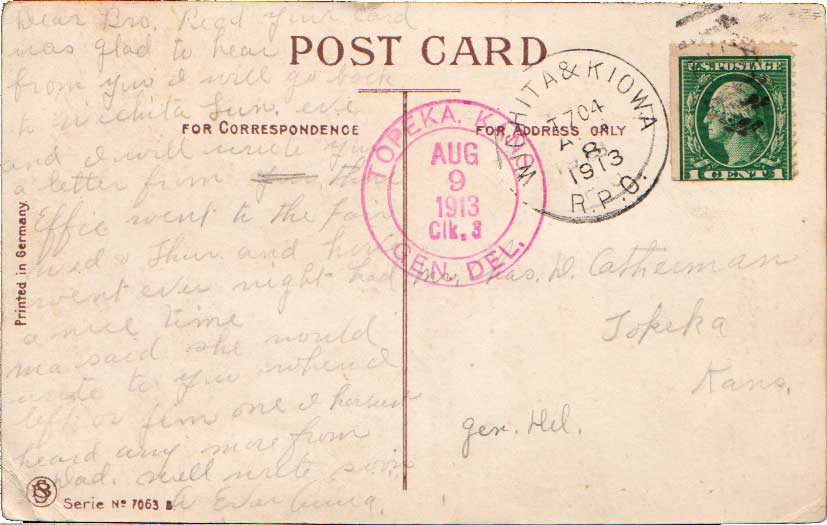 POST CARD
FOR CORRESPONDENCE
FOR ADDRESS ONLY
Dear Bro. Read your card
was glad to hear
from you I will go back
to Wichita Sun. eve
and I will write you
a letter from there
Effie went to the Fair
wed & Thur. and
went ever night had
a nice time
ma said she would
write to you when
left
heard any more from
will write soon
Mr. Chas. W. Catherman
Topeka
Kans.
Gen. Del.
WICHITA & KIOWA
T704
8
1913
R.P.O.
TOPEKA, KANS.
AUG
9
1913
Clk. 3
GEN. DEL.
U.S. POSTAGE
1 CENT 1
Printed in Germany
Serie Nº 7063 B.